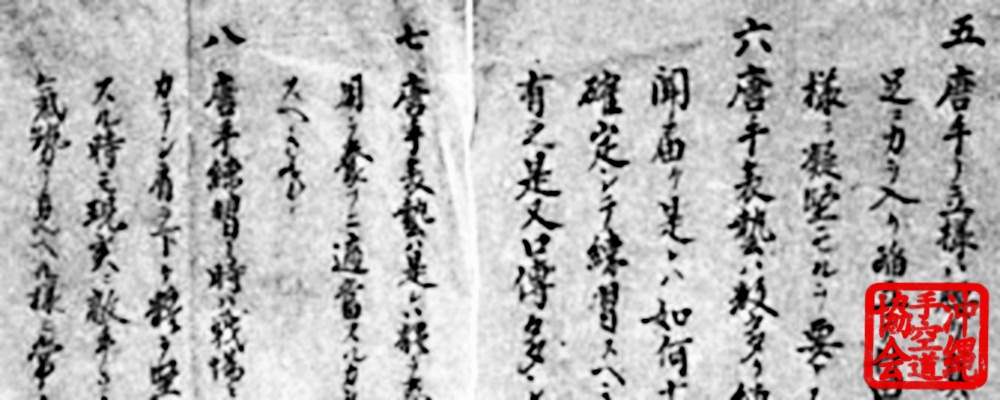 五 唐手ノ立様ハ
足ニ力ヲ入リ
様ニ凝堅モルヿ要ス
六 唐手表藝ハ数多ク
聞届ケ是レハ如何ナ
確定シテ練習スヘシ
有之是又口傳多シ
七 唐手表藝ハ是レハ體ヲ
用ヲ養フニ適當スルカ
スヘキ事
八 唐手練習ノ時ハ戦場ニ
カラシ肩ヲ下ケ體ヲ堅
スル時モ現実ニ敵手ヲ
氣勢ノ見ヘル様ニ常
沖縄
手空道
協会